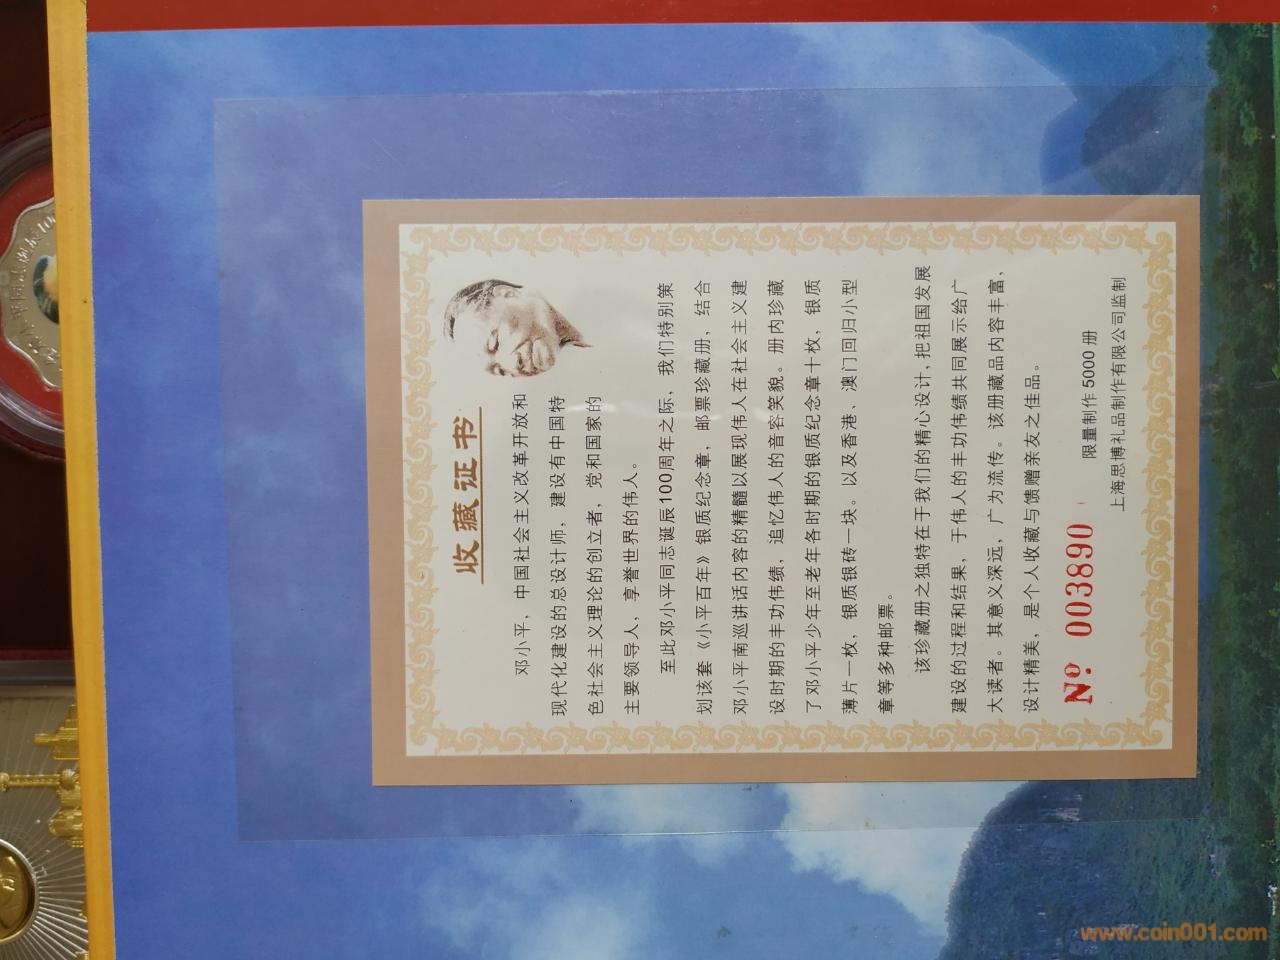 收藏证书
邓小平，中国社会主义改革开放和
现代化建设的总设计师，建设有中国特
色社会主义理论的创立者，党和国家的
主要领导人，享誉世界的伟人。
至此邓小平同志诞辰100周年之际，我们特别策
划该套《小平百年》银质纪念章，邮票珍藏册，结合
邓小平南巡讲话内容的精髓以展现伟人在社会主义建
设时期的丰功伟绩，追忆伟人的音容笑貌。册内珍藏
了邓小平少年至老年各时期的银质纪念章十枚，银质
薄片一枚，银质银砖一块。以及香港、澳门回归小型
章等多种邮票。
该珍藏册之独特在于我们的精心设计，把祖国发展
建设的过程和结果，于伟人的丰功伟绩共同展示给广
大读者。其意义深远，广为流传。该册藏品内容丰富，
设计精美，是个人收藏与馈赠亲友之佳品。
限量制作5000册
№: 003890
上海思博礼品制作有限公司监制
www.coin001.com